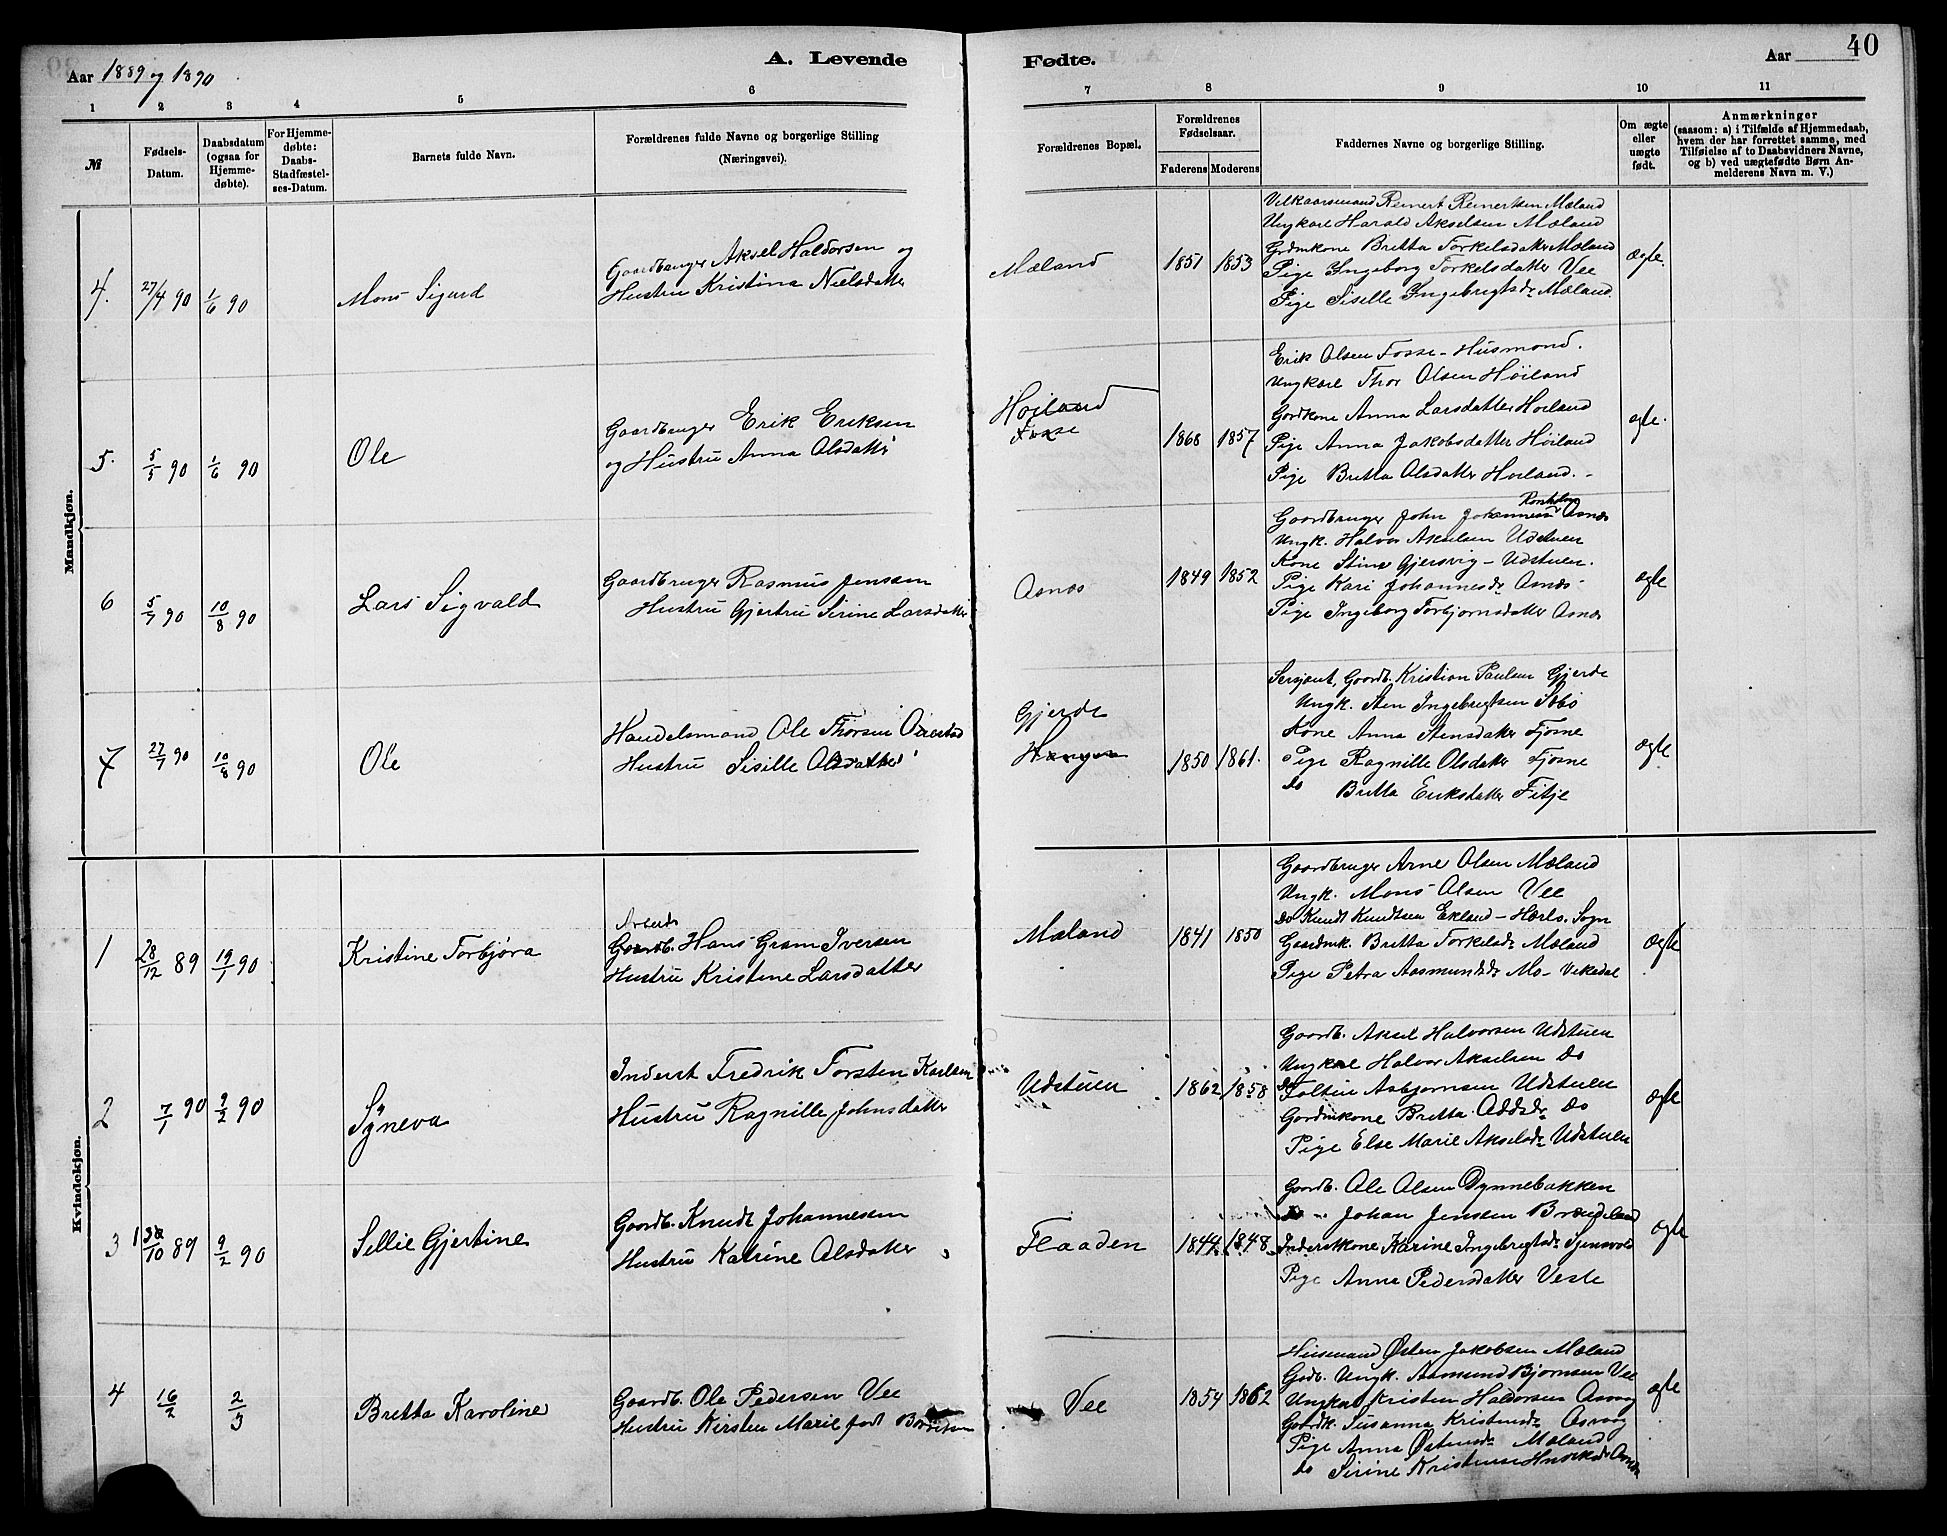 Aar 1889 og 1890
A. Levende
Fødte.
Aar
40
1
2
3
4
5
6
7
8
9
10
11
№
Fødsels-
Datum.
Daabsdatum
(ogsaa for
Hjemme-
døbte).
For Hjemme-
døbte:
Daabs-
Stadfæstel-
ses-Datum.
Barnets fulde Navn.
Forældrenes fulde Navne og borgerlige Stilling
(Næringsvei).
Forældrenes Bopæl.
Forældrenes
Fødselsaar.
Faderens Moderens
Faddernes Navne og borgerlige Stilling.
Om ægte
eller
uægte
født.
Anmærkninger
(saasom: a) i Tilfælde af Hjemmedaab,
hvem der har forrettet samme, med
Tilføielse af to Daabsvidners Navne,
og b) ved uægtefødte Børn An-
melderens Navn m. V.)
Mandkjøn.
4. 27/4 90 1/6 90 Mons Sigurd
Gaardbruger Aksel Haldorsen og
Hustru Kristina Nielsdatter
Mæland 1851 1853
Vilkaarsmand Reinert Reinertsen Mæland
Ungkarl Harald Akselsen Mæland
Grdmkone Britta Torkelsdatter Mæland
Pige Ingeborg Torkelsdatter Vee
Pige Siselle Ingebrigtsdr Mæland
Ægte.
5. 5/5 90 1/6 90 Ole
Gaardbruger Erik Eriksen
og Hustru Anna Olsdatter
Høiland
Fosse
1868 1857
Erik Olsen Fosse - Husmand.
Ungkarl Thor Olsen Høiland
Gordkone Anna Larsdatter Høiland
Pige Anna Jakobsdatter Høiland
Pige Britta Olsdatter Høiland. -
ægte.
6 5/7 90 10/8 90 Lars Sigvald
Gaardbruger Rasmus Jensen
Hustru Gjertru Sirine Larsdatter
Osnes 1849 1852
Gaardbruger John Johannesen Osnes
Ungk. Halvor Akselsen Udstuen
Kone Stine Gjersvig - Udstuen.
Pige Kari Johannesdr Osnes
Pige Ingeborg Torbjørnsdatter Osnes
ægte
7 27/7 90 10/8 90 Ole
Handelsmand Ole Thorsen
Hustru Sisille Olsdatter
Gjerde
1850 1861.
Sersjant, Gaardb. Kristian Paulsen Gjerde
Ungk. Sten Ingebrigtsen Sæbø
Kone Anna Stensdatter Fjøsne
Pige Ragnille Olsdatter Fjøsne
Do Britta Eriksdatter Fitje
ægte
Kvindekjøn.
1 28/12 89 19/1 90 Kristine Torbjøra
Arbeid.
Gaardb. Hans Gram Iversen
Hustru Kristine Larsdatter
Mæland 1841 1850
Gaardbruger Arne Olsen Mæland
Ungk. Mons Olsen Vee
Do Knudt Knudtsen Ekland - Hærls. Sogn
Gaardmk. Britta Torkelsdr Mæland
Pige Petra Aasmundsdr Mo - Vikedal
ægte
2 7/1 90 9/2 90 Syneva
Inderst Fredrik Torsten Karlsen
Hustru Ragnille Johnsdatter
Udstuen 1862 1858
Gaardb. Aksel Halvorsen Udstuen
Ungkarl Halvor Akselsen Do
Do Foltin Asbjørnsen Udstuen
Gordmkone Britta Do
Pige Else Marie Akselsdr Udstuen
ægte
3 /10 89 9/2 90 Sellie Gjertine
Gaardb. Knudt Johannesen
Hustru Katrine Olsdatter
Flaaden 1844 1848
Gaardb. Ole Olsen Dynnebakken
Do - Johan Jensen
Inderstkone Karine Ingebrigtsdr
Pige Anna Pedersdatter Vesle
ægte
4 16/2 2/3 Britta Karoline
Gaardb. Ole Pedersen Vee
Hustru Kirsten Marie født
Vee 1854 1862
Husmand Østen Jakobsen Mæland
Gdb. Ungk. Aasmund Bjørnsen Vee
Ungkarl Kristen Haldorsen Osvog
Gaardk. Susanna Kristensdr Osvog
Pige Anna Østensdr Mæland
Do Sirine Kristense
ægte